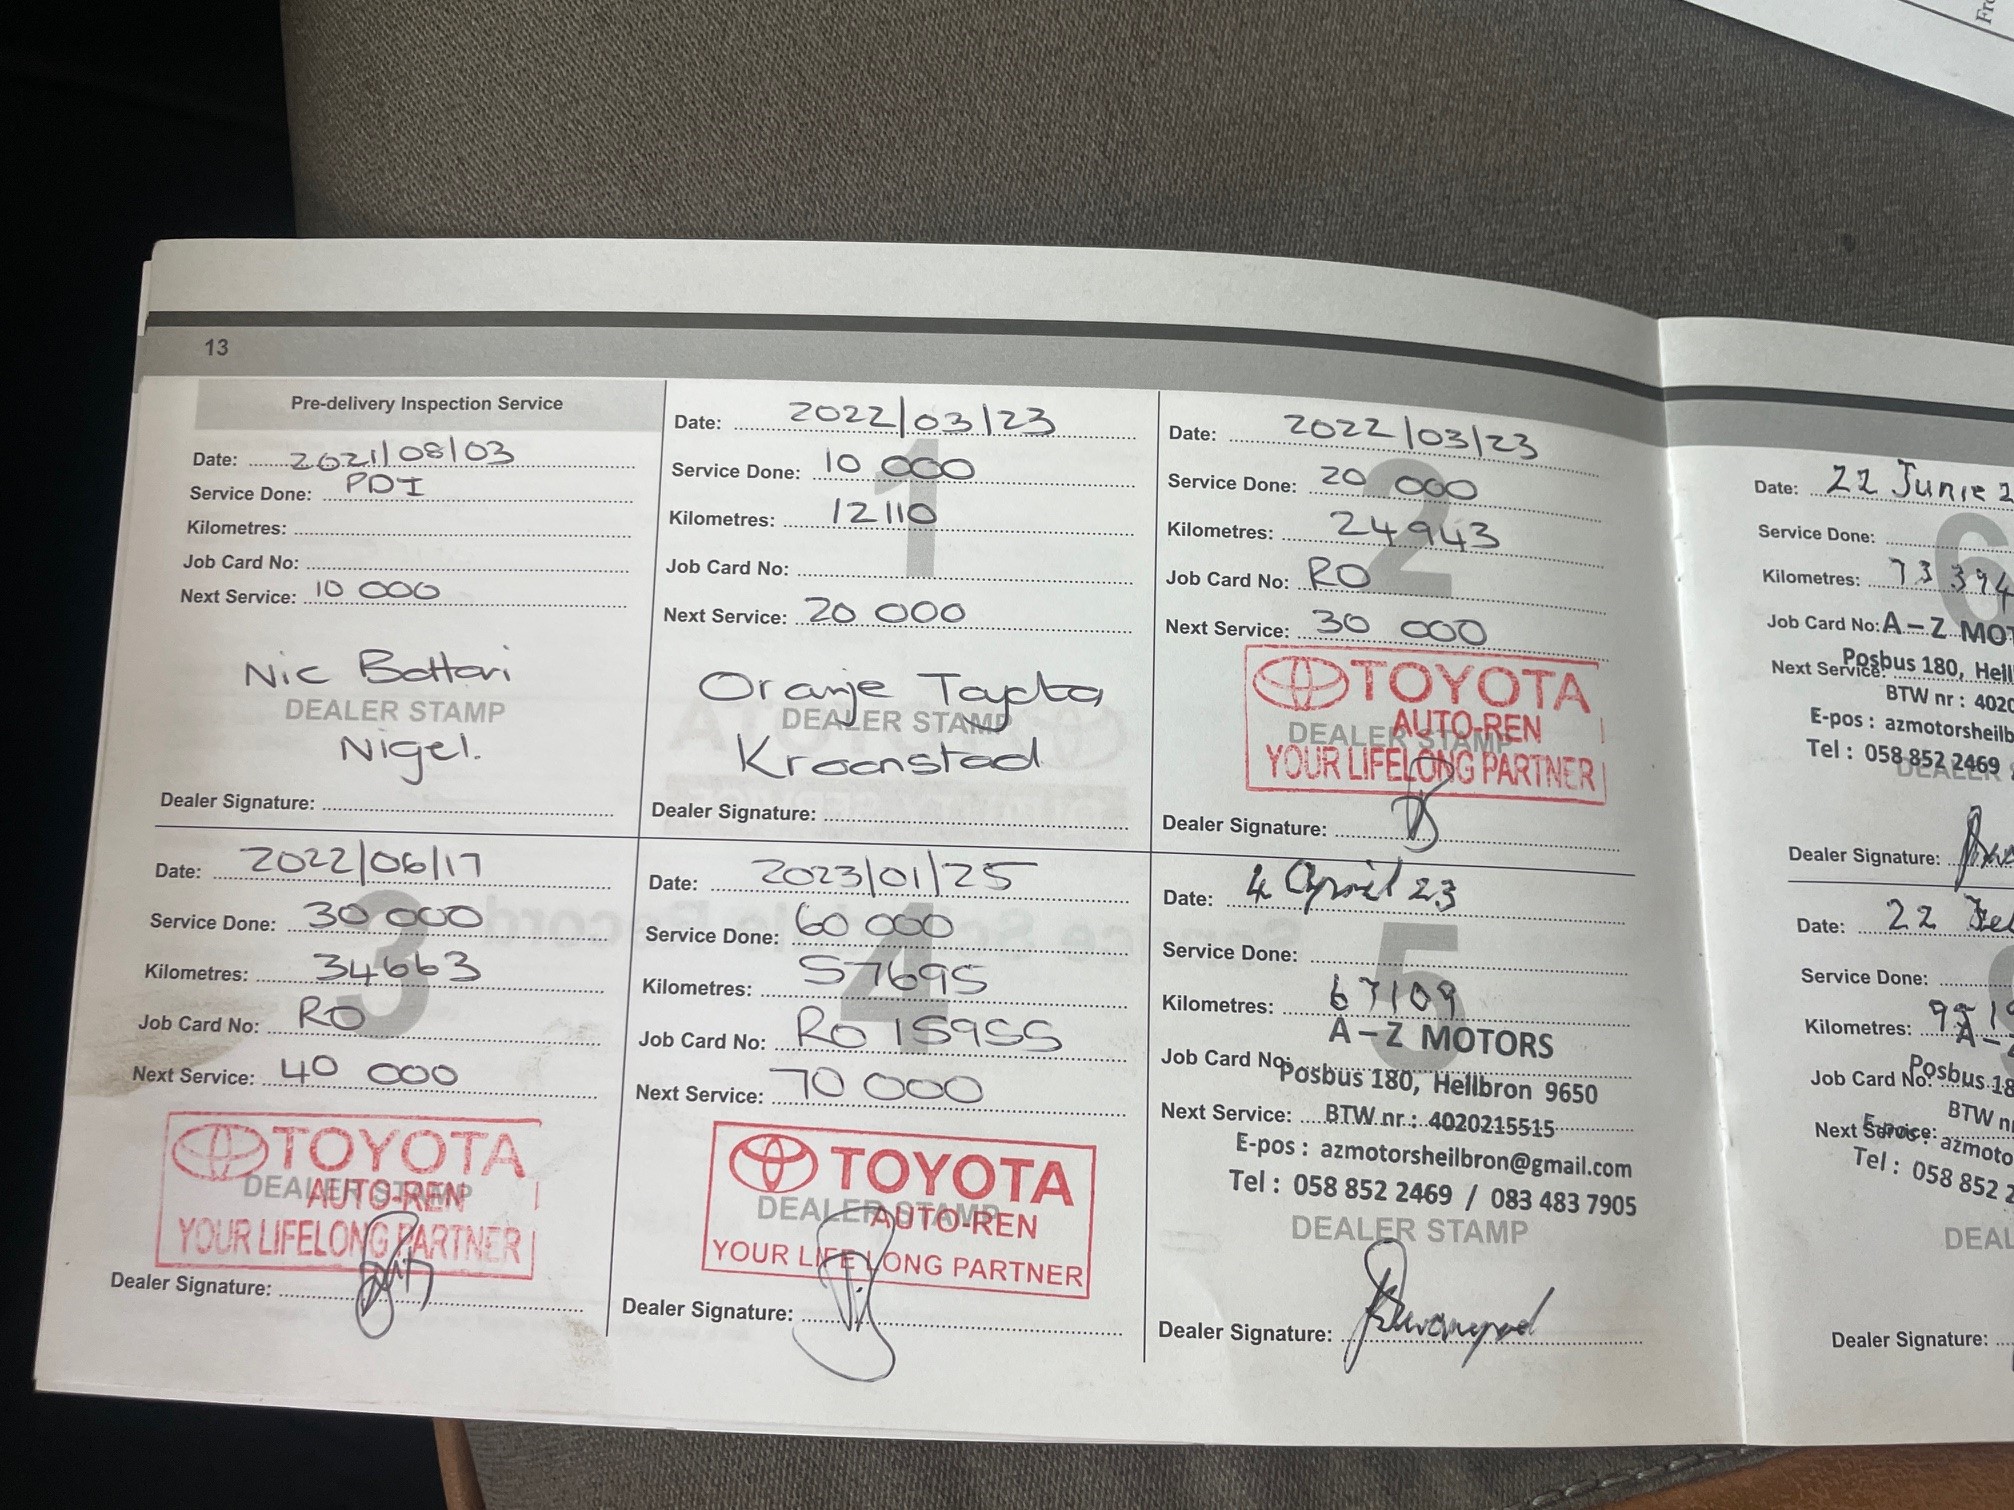 Fro
13
Pre-delivery Inspection Service
Date: 2021/08/03
Service Done: PDI
Kilometres:
Job Card No:
Next Service: 10 000
Nic Bottari
DEALER STAMP
Nigel.
Dealer Signature:
1
Date: 2022/03/23
Service Done: 10 000
Kilometres: 12110
Job Card No:
Next Service: 20 000
Oranje Toyota
DEALER STAMP
Kroonstad
Dealer Signature:
2
Date: 2022/03/23
Service Done: 20 000
Kilometres: 24943
Job Card No: RO
Next Service: 30 000
TOYOTA
AUTO-REN
DEALER STAMP
YOUR LIFELONG PARTNER
Dealer Signature:
3
Date: 2022/06/17
Service Done: 30 000
Kilometres: 34663
Job Card No: RO
Next Service: 40 000
TOYOTA
DEALER STAMP
AUTO-REN
YOUR LIFELONG PARTNER
Dealer Signature:
4
Date: 2023/01/25
Service Done: 60 000
Kilometres: 57695
Job Card No: RO 15955
Next Service: 70 000
TOYOTA
DEALER STAMP
AUTO-REN
YOUR LIFE LONG PARTNER
Dealer Signature:
5
Date: 4 April 23
Service Done:
Kilometres: 67109
A-Z MOTORS
Job Card No:
Posbus 180, Heilbron 9650
Next Service:
BTW nr : 4020215515
E-pos : azmotorsheilbron@gmail.com
Tel : 058 852 2469 / 083 483 7905
DEALER STAMP
Dealer Signature:
6
Date: 22 Junie 2
Service Done:
Kilometres: 73 394
Job Card No: A-Z MOT
Next Service:
Posbus 180, Heil
BTW nr : 4020
E-pos : azmotorsheilb
Tel : 058 852 2469
DEALER
Dealer Signature:
Date: 22
Service Done:
Kilometres:
A-Z
Job Card No:
Posbus 18
BTW n
Next Service:
E-pos : azmoto
Tel : 058 852 2
DEAL
Dealer Signature: